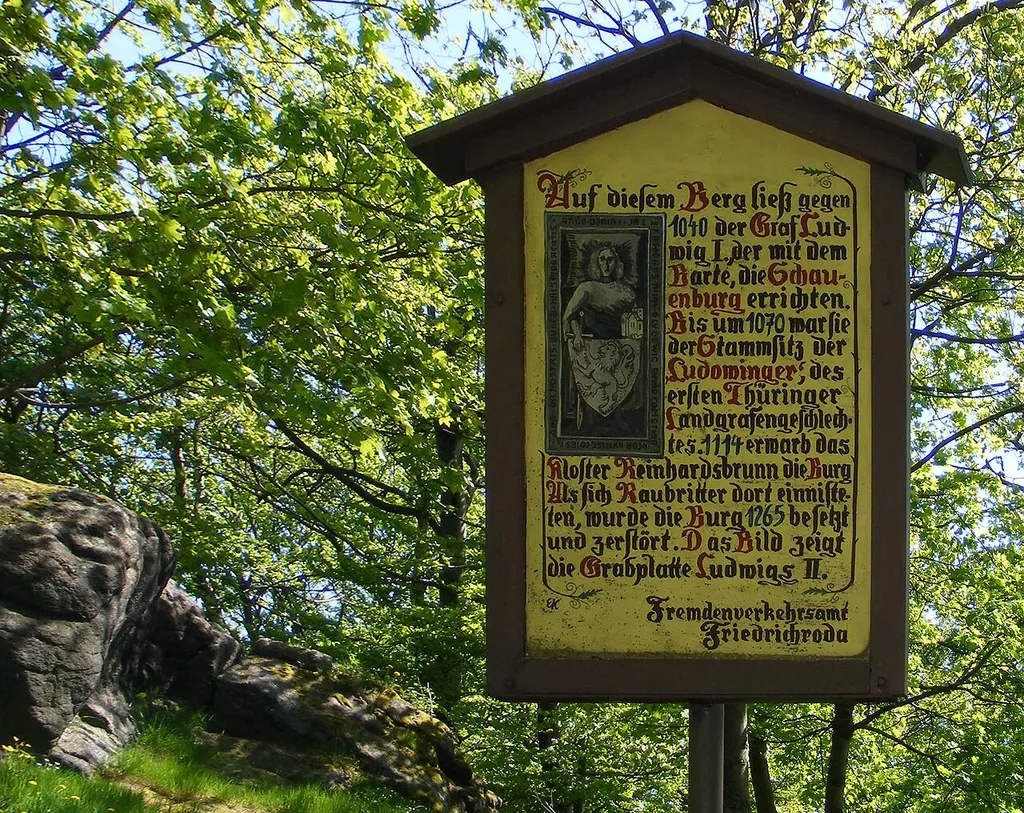 Auf dieſem Berg ließ gegen
1040 der Graf Lud-
wig I., der mit dem
Barte, die Schau-
enburg errichten.
Bis um 1070 war ſie
der Stammſitz der
Ludowinger, des
erſten Thüringer
Landgrafengeſchlech-
tes. 1114 erwarb das
Kloſter Reinhardsbrunn die Burg
Als ſich Raubritter dort einniſte-
ten, wurde die Burg 1265 beſetzt
und zerſtört. Das Bild zeigt
die Grabplatte Ludwigs II.
EK
Fremdenverkehrsamt
Friedrichroda